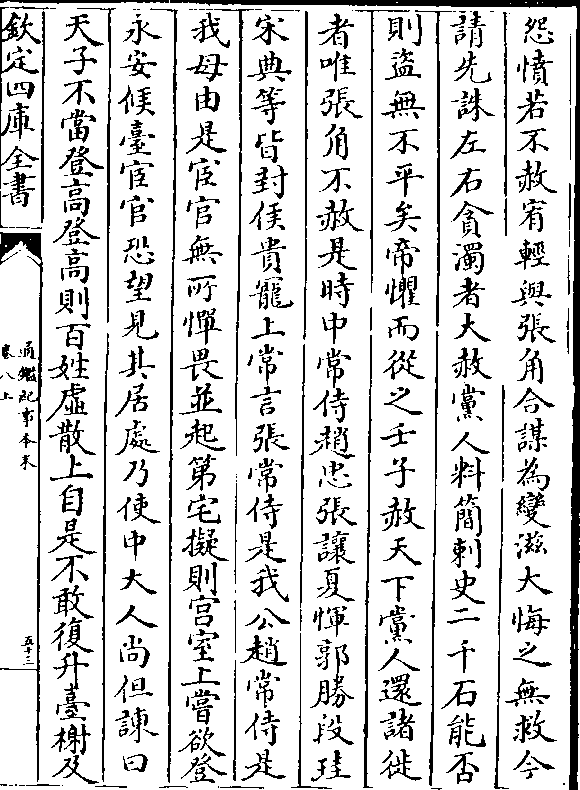 怨憤若不赦宥輕與張角合謀為變滋大悔之無救今
請先誅左右貪濁者大赦黨人料簡刺史二千石能否
則盜無不平矣帝懼而從之壬子赦天下黨人還諸徙
者唯張角不赦是時中常侍趙忠張讓夏惲郭勝段珪
宋典等皆封侯貴寵上常言張常侍是我公趙常侍是
我母由是宦官無所憚畏並起第宅擬則宫室上嘗欲登
永安候臺宦官恐望見其居處乃使中大人尚但諫曰
天子不當登高登高則百姓虛散上自是不敢復升臺榭及
欽定四庫全書
通鑑紀事本末
卷八上
五十三